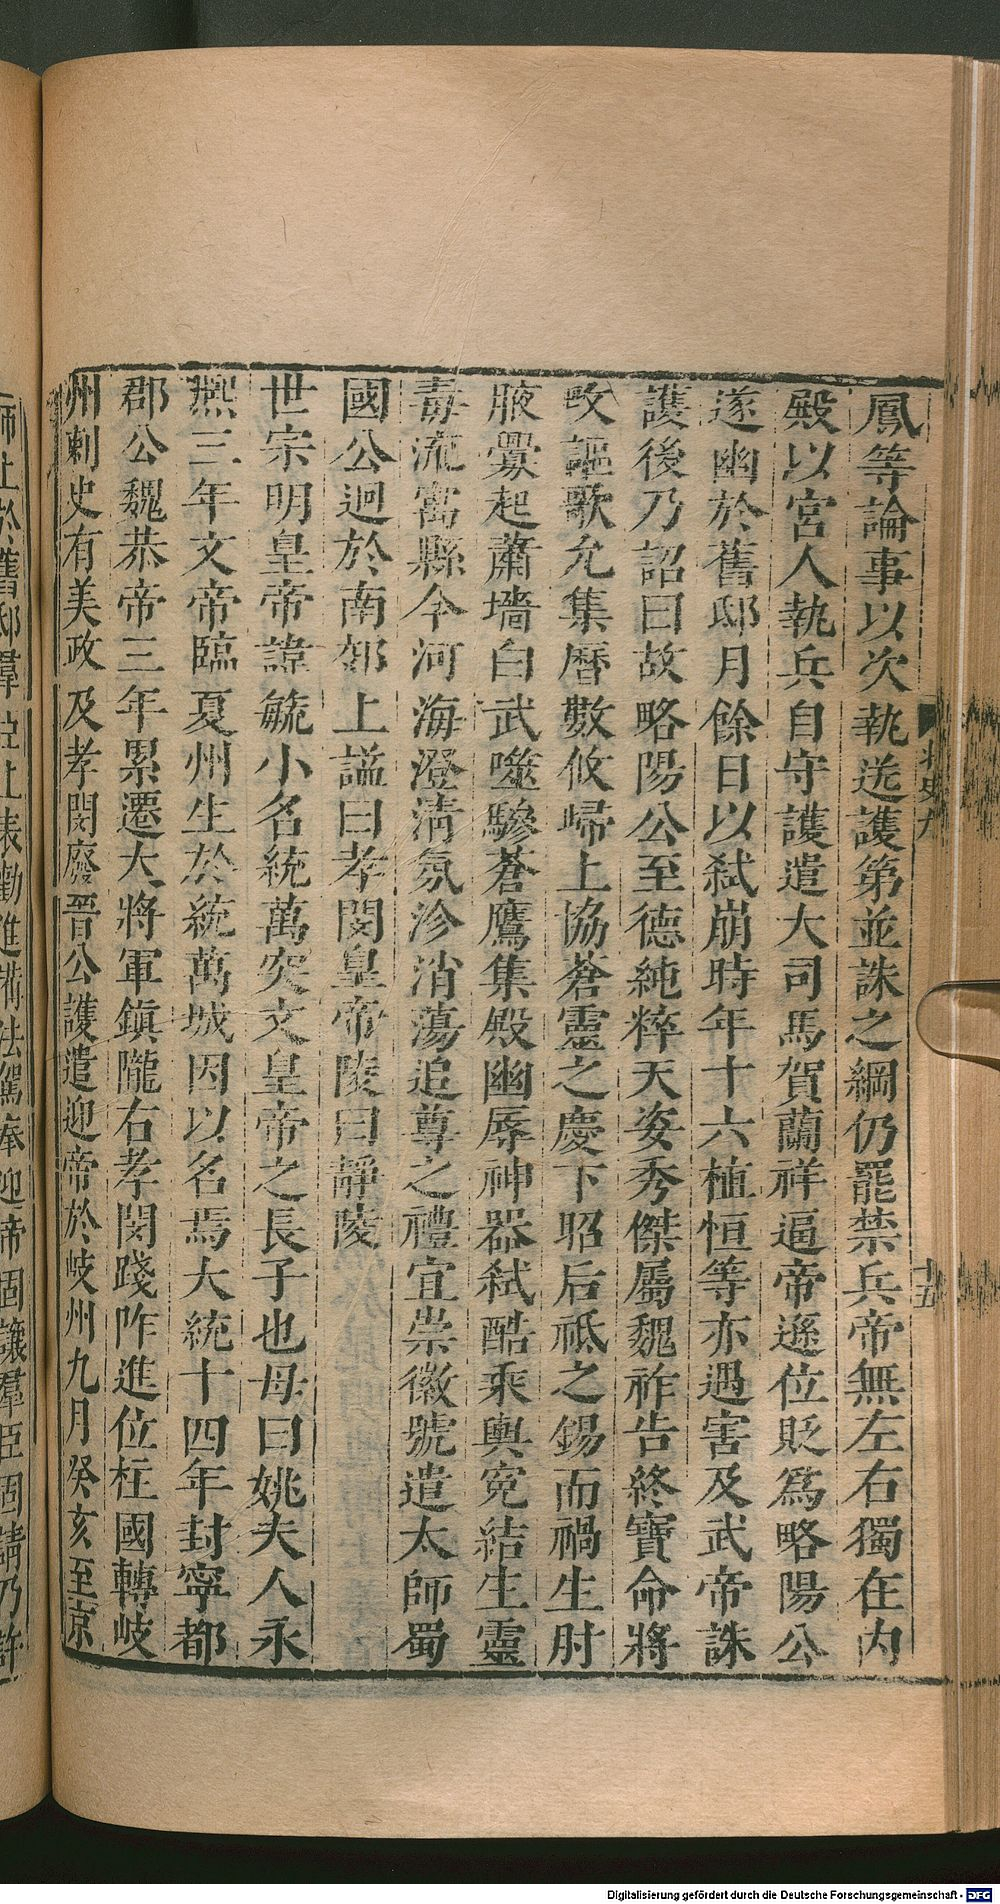 鳳等論事以次執送護第並誅之綱仍罷禁兵帝無左右獨在內
殿以宮人執兵自守護遣大司馬賀蘭祥逼帝遜位貶爲略陽公
遂幽於舊邸月餘日以弑崩時年十六植恒等亦遇害及武帝誅
護後乃詔曰故略陽公至德純粹天姿秀傑屬魏祚告終寶命將
攺謳歌允集曆數攸歸上協蒼靈之慶下昭后祗之錫而禍生肘
腋釁起蕭墻白武噬驂蒼鷹集殿幽辱神器弑酷乘輿冤結生靈
毒流㝢縣今河海澄清氛沴消蕩追尊之禮宜崇徽號遣太師蜀
國公迥於南郊上諡曰孝閔皇帝陵曰靜陵
世宗明皇帝諱毓小名統萬突文皇帝之長子也母曰姚夫人永
熙三年文帝臨夏州生於統萬城因以名焉大統十四年封寧都
郡公魏恭帝三年累遷大將軍鎮隴右孝閔踐阼進位柱國轉岐
州刺史有美政及孝閔廢晉公護遣迎帝於岐州九月癸亥至京
師止於舊邸羣臣上表勸進備法駕奉迎帝固讓羣臣固請乃許
北史九
十五
Digitalisierung gefördert durch die Deutsche Forschungsgemeinschaft - DFG